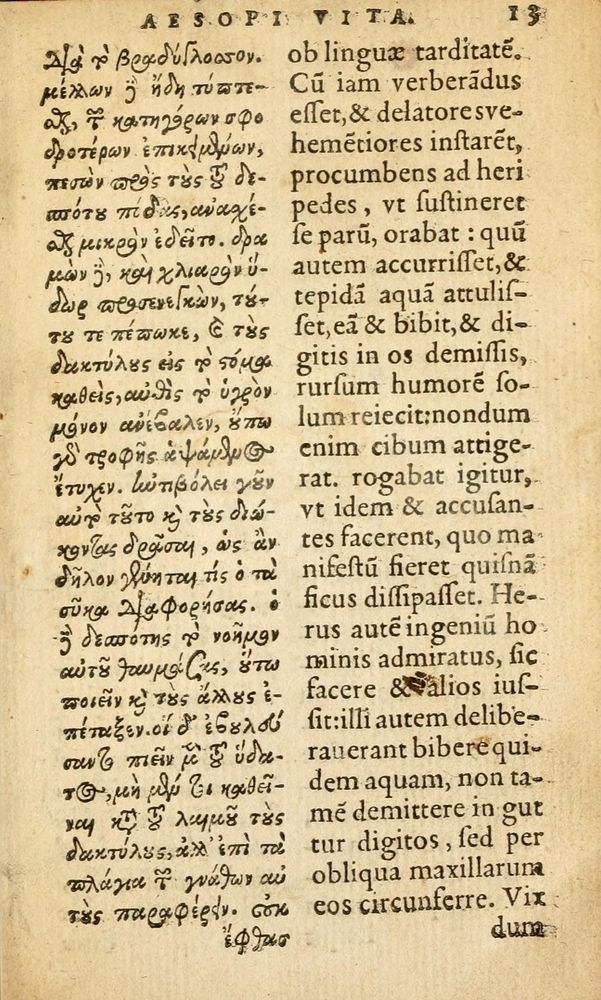 AESOPI VITA. 13
Διὰ τὸ βραδύγλωσσον.
μέλλων δὲ ἤδη τύπτε-
σθαι, τῶν κατηγόρων σφο
δροτέρων ἐπικειμένων,
πεσὼν πρὸς τοὺς τοῦ δε-
σπότου πόδας, ἀνασχέ-
σθαι μικρὸν ἐδεῖτο. δρα
μὼν δὲ, καὶ χλιαρὸν ὕ-
δωρ προσενεγκὼν, τού-
του τε πέπωκε, καὶ τοὺς
δακτύλους εἰς τὸ στόμα
καθεὶς, αὖθις τὸ ὑγρὸν
μόνον ἀνέβαλεν, οὔπω
γὰρ τροφῆς ἁψάμενος
ἔτυχεν. ἠντιβόλει γοῦν
αὐτὸ τοῦτο καὶ τοὺς διώ-
κοντας δρᾶσαι, ὡς ἂν
δῆλον γένηται τίς ὁ τὰ
σῦκα διαφορήσας. ὁ
δὲ δεσπότης τὸ νοῆμον
αὐτοῦ θαυμάσας, οὕτω
ποιεῖν καὶ τοὺς ἄλλους ἐ-
πέταξεν. οἱ δ' ἐβουλεύ
σαντο πιεῖν μὲν τοῦ ὕδα-
τος, μὴ μέντοι καθεῖ-
ναι κατὰ τοῦ λαιμοῦ τοὺς
δακτύλους, ἀλλ' ἐπὶ τὰ
πλάγια τῶν γνάθων αὐ
τοὺς παραφέρειν. οὐκ
ἔφθασ
ob linguæ tarditatē.
Cū iam verberādus
esset, & delatores ve-
hemētiores instarēt,
procumbens ad heri
pedes, vt sustineret
se parū, orabat: quū
autem accurrisset, &
tepidā aquā attulis-
set, eā & bibit, & di-
gitis in os demissis,
rursum humorē so-
lum reiecit: nondum
enim cibum attige-
rat. rogabat igitur,
vt idem & accusan-
tes facerent, quo ma
nifestū fieret quisnā
ficus dissipasset. He-
rus autē ingeniū ho
minis admiratus, sic
facere & alios ius-
sit: illi autem delibe-
rauerant bibere qui-
dem aquam, non ta-
mē demittere in gut
tur digitos, sed per
obliqua maxillarum
eos circunferre. Vix
dum